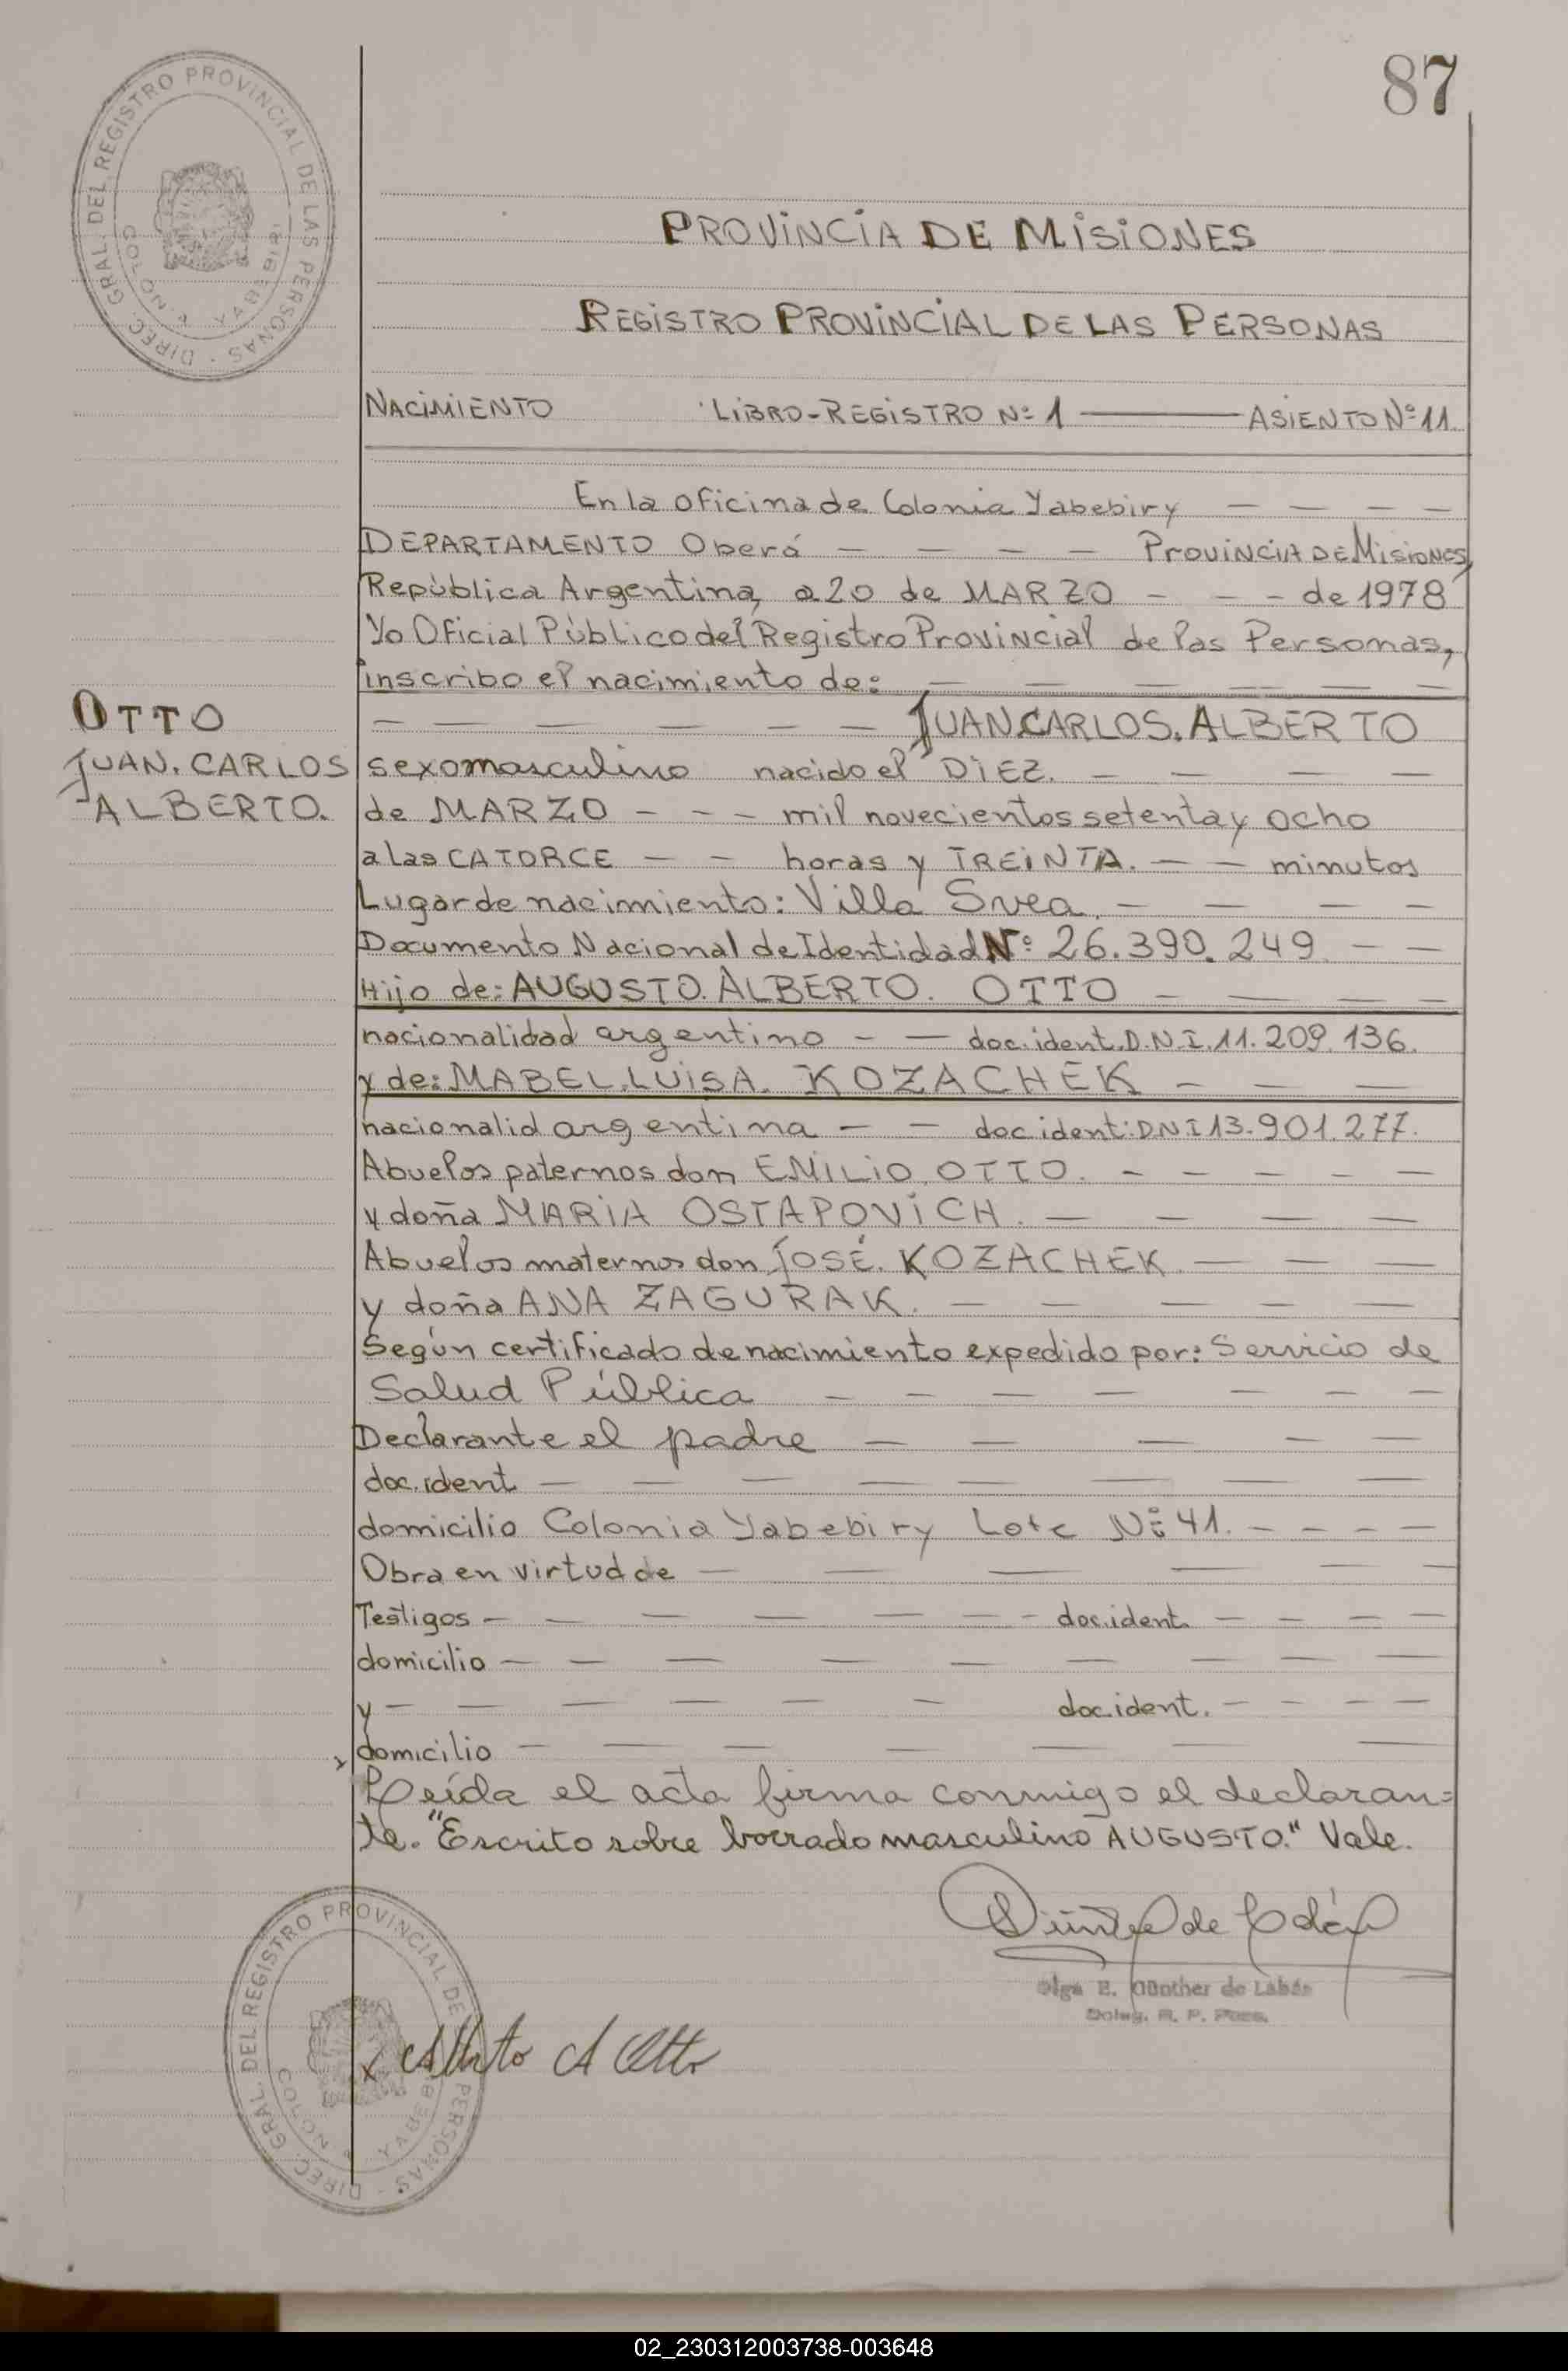 87
DIREC. GRAL. DEL REGISTRO PROVINCIAL DE LAS PERSONAS
COLONIA YABEBIRI
PROVINCIA DE MISIONES
REGISTRO PROVINCIAL DE LAS PERSONAS
NACIMIENTO LIBRO-REGISTRO Nº 1 ——— ASIENTO Nº 11.
En la oficina de Colonia Yabebiry — — — —
DEPARTAMENTO Oberá — — — — PROVINCIA DE MISIONES,
República Argentina, a 20 de MARZO - - - de 1978
Yo Oficial Público del Registro Provincial de las Personas,
inscribo el nacimiento de: — — — — — —
OTTO
JUAN. CARLOS
ALBERTO.
— — — — — — JUAN.CARLOS.ALBERTO
sexo masculino nacido el DIEZ. — — — —
de MARZO - - - mil novecientos setenta y ocho
a las CATORCE — — horas y TREINTA. — — minutos
Lugar de nacimiento: Villa Svea. — — — —
Documento Nacional de Identidad Nº: 26.390.249. — —
Hijo de: AUGUSTO. ALBERTO. OTTO — — — —
nacionalidad argentino - — doc. ident. D.N.I. 11.209.136.
y de: MABEL.LUISA. KOZACHEK — — —
nacionalid argentina — — doc ident: DNI 13.901.277.
Abuelos paternos don EMILIO. OTTO. — — — — —
y doña MARIA OSTAPOVICH. — — — —
Abuelos maternos don JOSÉ. KOZACHEK. — — —
y doña ANA ZAGURAK. — — — — —
Según certificado de nacimiento expedido por: Servicio de
Salud Pública — — — — — — —
Declarante el padre — — — — —
doc. ident — — — — — — — —
domicilio Colonia Yabebiry Lote Nº 41. — — — —
Obra en virtud de — — — — — —
Testigos — — — — — — - doc. ident. — — — —
domicilio — — — — — — — — —
y — — — — — — doc. ident. — — — —
domicilio — — — — — — —
Leída el acta firma conmigo el declaran=
te. "Escrito sobre borrado masculino AUGUSTO." Vale.
Olga E. Günther de Labán
Deleg. R. P. Pers.
DIREC. GRAL. DEL REGISTRO PROVINCIAL DE PERSONAS
x Alberto A Otto
02_230312003738-003648